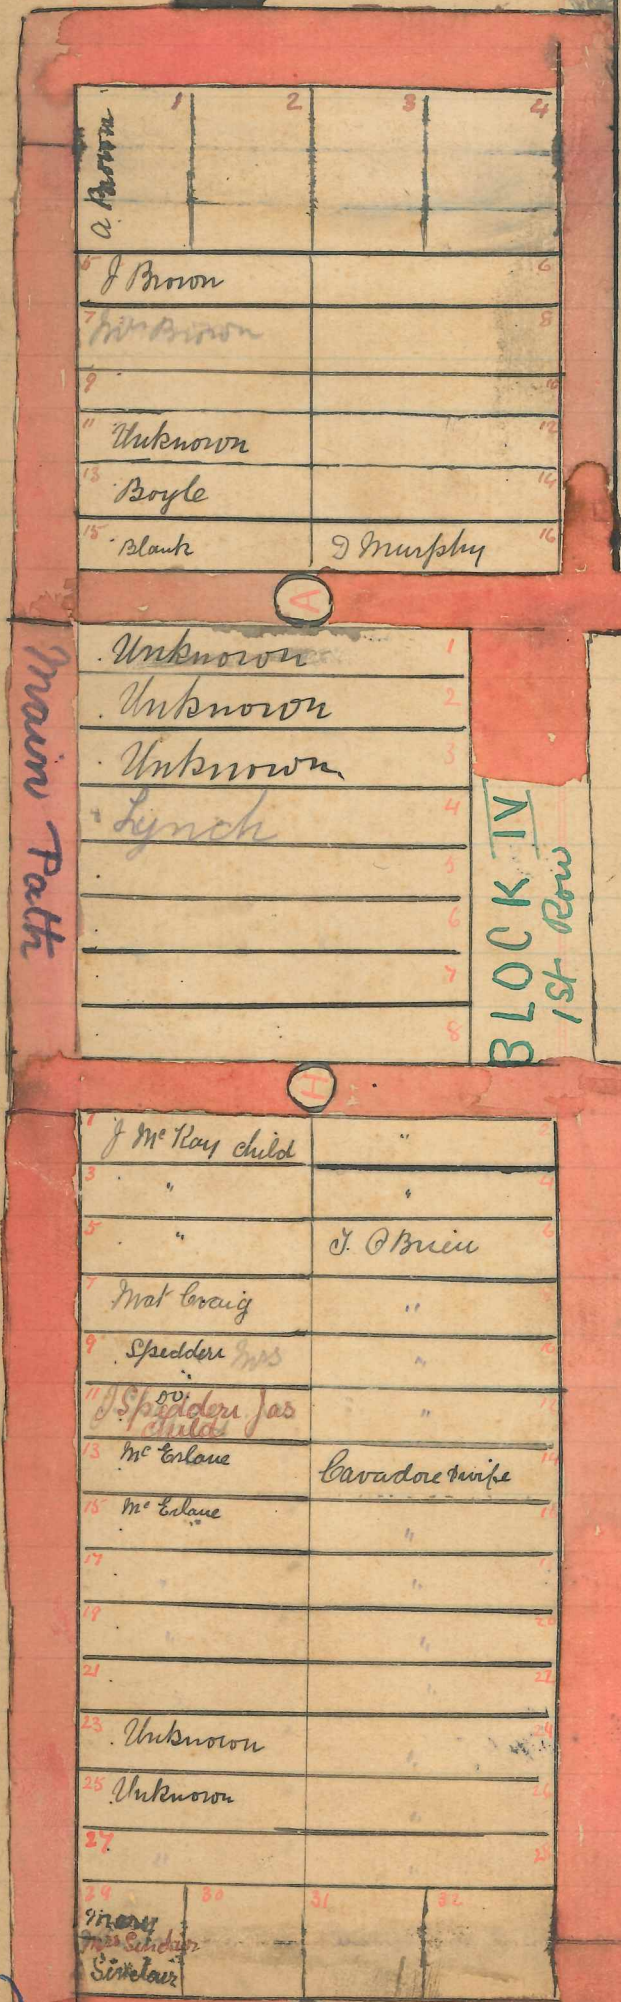 1 2 3 4
A. Brown
5 J Brown 6
7 Mrs Brown 8
9 10
11 Unknown 12
13 Boyle 14
15 Blank D Murphy 16
A
Main Path
Unknown 1
Unknown 2
Unknown 3
Lynch 4
5
6
7
8
BLOCK IV
1st Row
H
1 J McKay child " 2
3 " " 4
5 " J. O'Brien 6
7 Mat Craig "
9 Spedden Mrs " 10
Do
11 J Spedden Jas " 12
child
13 McErlane Cavadore & wife 14
15 McErlane "
17 " "
19 " " 20
21 " 22
23 Unknown " 24
25 Unknown " 26
27 " 28
29 30 31 32
Mary
Mrs Sinclair
Sinclair